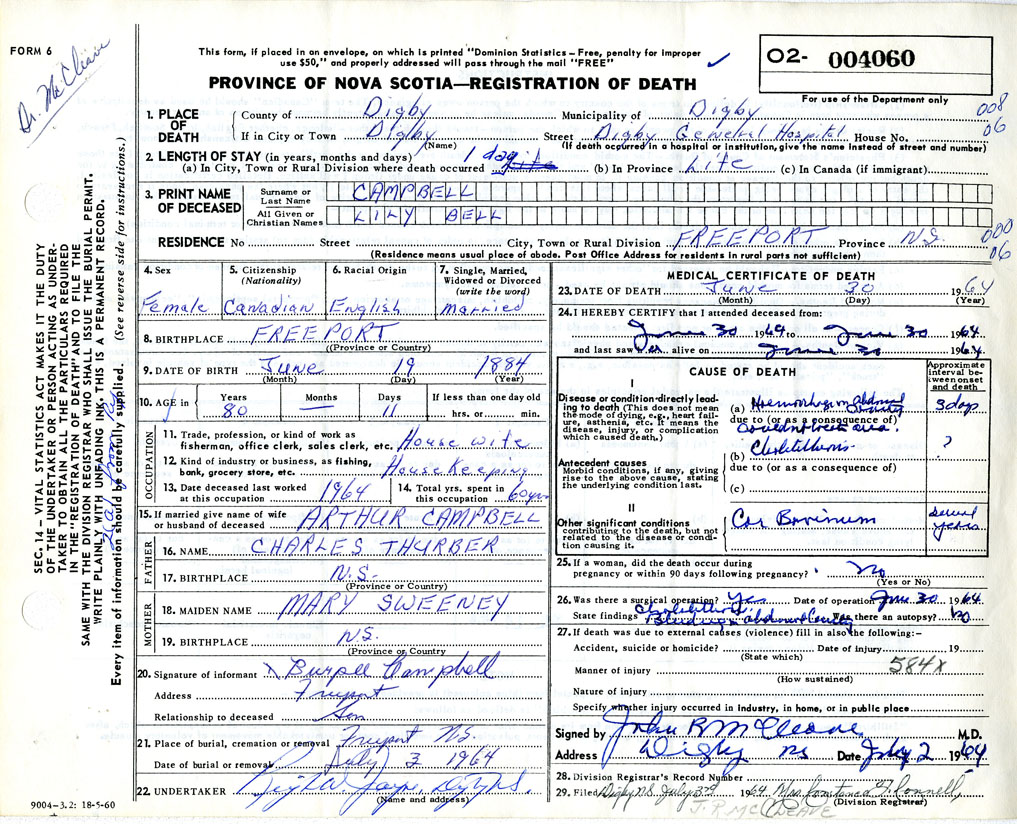 FORM 6
Dr. McCleave
This form, if placed in an envelope, on which is printed "Dominion Statistics – Free, penalty for improper
use $50," and properly addressed will pass through the mail "FREE"
O2- 004060
PROVINCE OF NOVA SCOTIA—REGISTRATION OF DEATH
For use of the Department only
1. PLACE OF DEATH
County of Digby Municipality of Digby 008
If in City or Town Digby Street Digby General Hospital House No. 06
(Name) (If death occurred in a hospital or institution, give the name instead of street and number)
2. LENGTH OF STAY (in years, months and days) 1 day
(a) In City, Town or Rural Division where death occurred (b) In Province Life (c) In Canada (if immigrant)
3. PRINT NAME OF DECEASED
Surname or Last Name CAMPBELL
All Given or Christian Names LILY BELL
RESIDENCE No Street City, Town or Rural Division FREEPORT Province N.S. 000
06
(Residence means usual place of abode. Post Office Address for residents in rural parts not sufficient)
4. Sex 5. Citizenship (Nationality) 6. Racial Origin 7. Single, Married, Widowed or Divorced (write the word)
Female Canadian English Married
8. BIRTHPLACE FREEPORT
(Province or Country)
9. DATE OF BIRTH June 19 1884
(Month) (Day) (Year)
10. AGE in Years Months Days If less than one day old
80 — 11 hrs. or min.
OCCUPATION
11. Trade, profession, or kind of work as
fisherman, office clerk, sales clerk, etc. House wife
12. Kind of industry or business, as fishing,
bank, grocery store, etc. House Keeping
13. Date deceased last worked
at this occupation 1964
14. Total yrs. spent in
this occupation 60 yrs
15. If married give name of wife
or husband of deceased ARTHUR CAMPBELL
FATHER
16. NAME CHARLES THURBER
17. BIRTHPLACE N.S.
(Province or Country)
MOTHER
18. MAIDEN NAME MARY SWEENEY
19. BIRTHPLACE N.S.
(Province or Country)
20. Signature of informant Burpee Campbell
Address Freeport
Relationship to deceased Son
21. Place of burial, cremation or removal Freeport N.S.
Date of burial or removal July 3 1964
22. UNDERTAKER
(Name and address)
9004-3.2: 18-5-60
SEC. 14 – VITAL STATISTICS ACT MAKES IT THE DUTY
OF THE UNDERTAKER OR PERSON ACTING AS UNDER-
TAKER TO OBTAIN ALL THE PARTICULARS REQUIRED
IN THE "REGISTRATION OF DEATH" AND TO FILE THE
SAME WITH THE DIVISION REGISTRAR WHO SHALL ISSUE THE BURIAL PERMIT.
WRITE PLAINLY WITH UNFADING INK. THIS IS A PERMANENT RECORD.
Every item of information should be carefully supplied. (See reverse side for instructions.)
MEDICAL CERTIFICATE OF DEATH
23. DATE OF DEATH June 30 1964
(Month) (Day) (Year)
24. I HEREBY CERTIFY that I attended deceased from:
June 30 1964 to June 30 1964
and last saw her alive on June 30 1964
CAUSE OF DEATH
Approximate interval between onset and death
I
Disease or condition directly lead-
ing to death (This does not mean
the mode of dying, e.g., heart fail-
ure, asthenia, etc. It means the
disease, injury, or complication
which caused death.)
(a) Haemorrhage in abdominal cavity 3 days
due to (or as a consequence of)
Antecedent causes
Morbid conditions, if any, giving
rise to the above cause, stating
the underlying condition last.
(b) Cholelithiasis ?
due to (or as a consequence of)
(c)
II
Other significant conditions
contributing to the death, but not
related to the disease or condi-
tion causing it.
Cor Bovinum several years
25. If a woman, did the death occur during
pregnancy or within 90 days following pregnancy? No
(Yes or No)
26. Was there a surgical operation? Yes Date of operation June 30 1964
State findings Cholelithiasis. Bleeding in abdominal Cavity Was there an autopsy? No
27. If death was due to external causes (violence) fill in also the following:–
Accident, suicide or homicide? Date of injury 19
(State which)
584X
Manner of injury
(How sustained)
Nature of injury
Specify whether injury occurred in industry, in home, or in public place
Signed by John R McCleave M.D.
Address Digby NS Date July 2 1964
28. Division Registrar's Record Number
29. Filed Digby N.S. July 3rd 1964 Mrs. Constance
(Division Registrar)
J. R. McCLEAVE